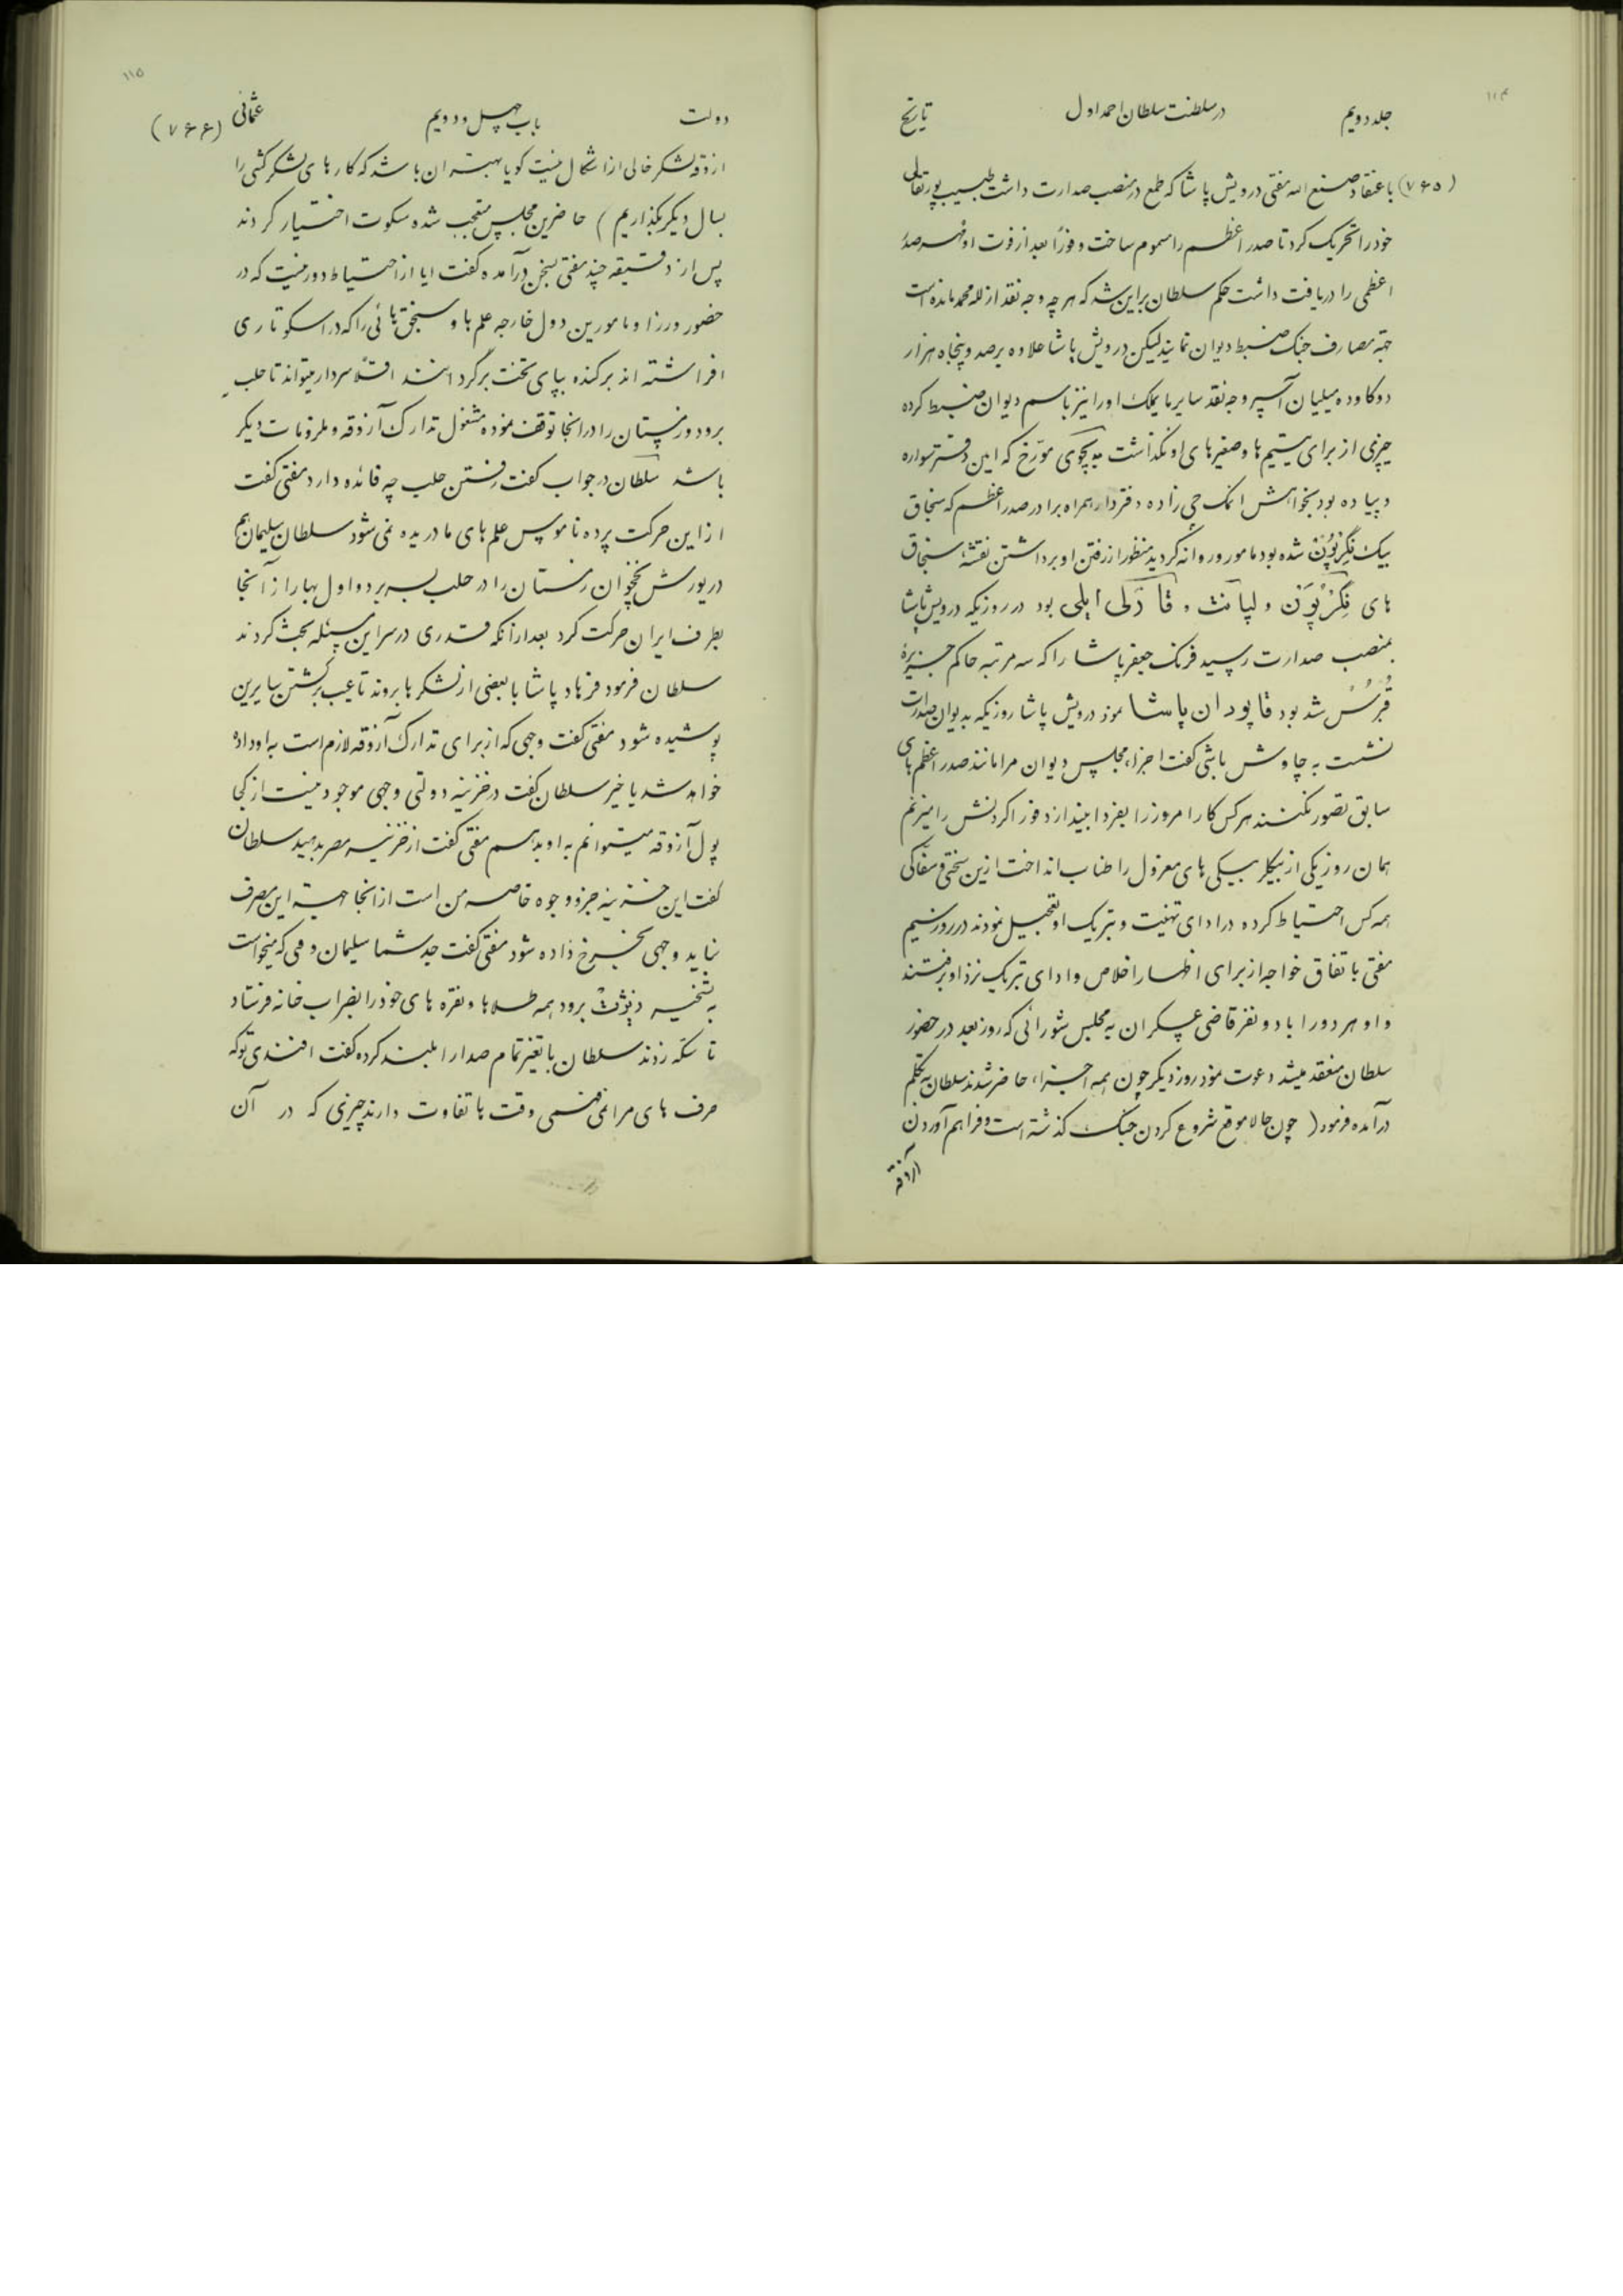 ۱۱۴
جلد دویم در سلطنت سلطان احمد اول تاریخ
(۷۶۵) باعتقاد صنع الله مفتی درویش پاشا که طمع در منصب صدارت داشت طبیب پورتقالی
خود را تحریک کرد تا صدر اعظم را مسموم ساخت و فوراً بعد از فوت او مهر صدر
اعظمی را دریافت داشت حکم سلطان بر این شد که هر چه وجه نقد از لله محمد مانده است
جهة مصارف جنک ضبط دیوان نمایند لیکن درویش پاشا علاوه بر صد و پنجاه هزار
دوکا و ده میلیان آسپر وجه نقد سایر مایملک او را نیز باسم دیوان ضبط کرده
چیزی از برای یتیم ها و صغیرهای او نگذاشت پچوی مورّخ که این دفتر سواره
و پیاده بود بخواهش اتمک چی زاده دفتردار همراه برادر صدر اعظم که سنجاق
بیک نِگِرْپُونْ شده بود مامور و روانه گردید منظور از رفتن او برداشتن نقشهٔ سنجاق
های نِگِرْپُونْ و لپانت و قارلی ایلی بود در روزیکه درویش پاشا
بمنصب صدارت رسید فرنک جعفر پاشا را که سه مرتبه حاکم جزیرهٔ
قبرس شده بود قاپودان پاشا نمود درویش پاشا روزیکه بدیوان صدارت
نشست به چاوش باشی گفت اجزاء مجلس دیوان مرا مانند صدر اعظم های
سابق تصور نکنند هر کس کار امروز را بفردا بیندازد فوراً گردنش را میزنم
همان روز یکی از بیکلر بیکی های معزول را طناب انداخت ازین سختی و سفاکی
همه کس احتیاط کرده در ادای تهنیت و تبریک او تعجیل نمودند در روز سیم
مفتی باتفاق خواجه از برای اظهار اخلاص و ادای تبریک نزد او رفتند
و او هر دو را با دو نفر قاضی عسکران به مجلس شورائی که روز بعد در حضور
سلطان منعقد میشد دعوت نمود روز دیگر چون همه اجزاء حاضر شدند سلطان به تکلم
در آمده فرمود (چون حالا موقع شروع کردن جنک گذشته است و فراهم آوردن
آزوقه
۱۱۵
دولت باب چهل و دویم عثمانی (۷۶۶)
ازوقه لشکر خالی از اشکال نیست گویا بهتر ان باشد که کارهای لشکر کشی را
بسال دیگر بگذاریم) حاضرین مجلس متعجب شده سکوت اختیار کردند
پس از دقیقه چند مفتی بسخن درآمده گفت ایا از احتیاط دور نیست که در
حضور وزرا و مامورین دول خارجه علم ها و سنجق هائی را که در اسکوتاری
افراشته اند برکنده بپای تخت برگردانند اقلّاً سردار میتواند تا حلب
برود و زمستان را در انجا توقف نموده مشغول تدارک آزوقه و ملزومات دیگر
باشد سلطان در جواب گفت رفتن حلب چه فائده دارد مفتی گفت
از این حرکت پرده ناموس علم های ما دریده نمی شود سلطان سلیمان هم
در یورش نخجوان زمستان را در حلب بسر برد و اول بهار از آنجا
بطرف ایران حرکت کرد بعد از آنکه قدری در سر این مسئله بحث کردند
سلطان فرمود فرهاد پاشا با بعضی از لشکرها بروند تا عیب برگشتن سایرین
پوشیده شود مفتی گفت وجهی که از برای تدارک آزوقه لازم است به او داده
خواهد شد یا خیر سلطان گفت در خزینه دولتی وجهی موجود نیست از کجا
پول آزوقه میتوانم به او بدهم مفتی گفت از خزینه مصر بدهید سلطان
گفت این خزینه جزو وجوه خاصه من است از انجا جهة این مصرف
نباید وجهی بخرج داده شود مفتی گفت جد شما سلیمان وقتی که میخواست
به تسخیر برود همه طلاها و نقره های خود را بضراب خانه فرستاد
تا سکّه زدند سلطان با تغیّر تمام صدا را بلند کرده گفت افندی تو که
حرف های مرا نمی فهمی وقت ها تفاوت دارند چیزی که در آن